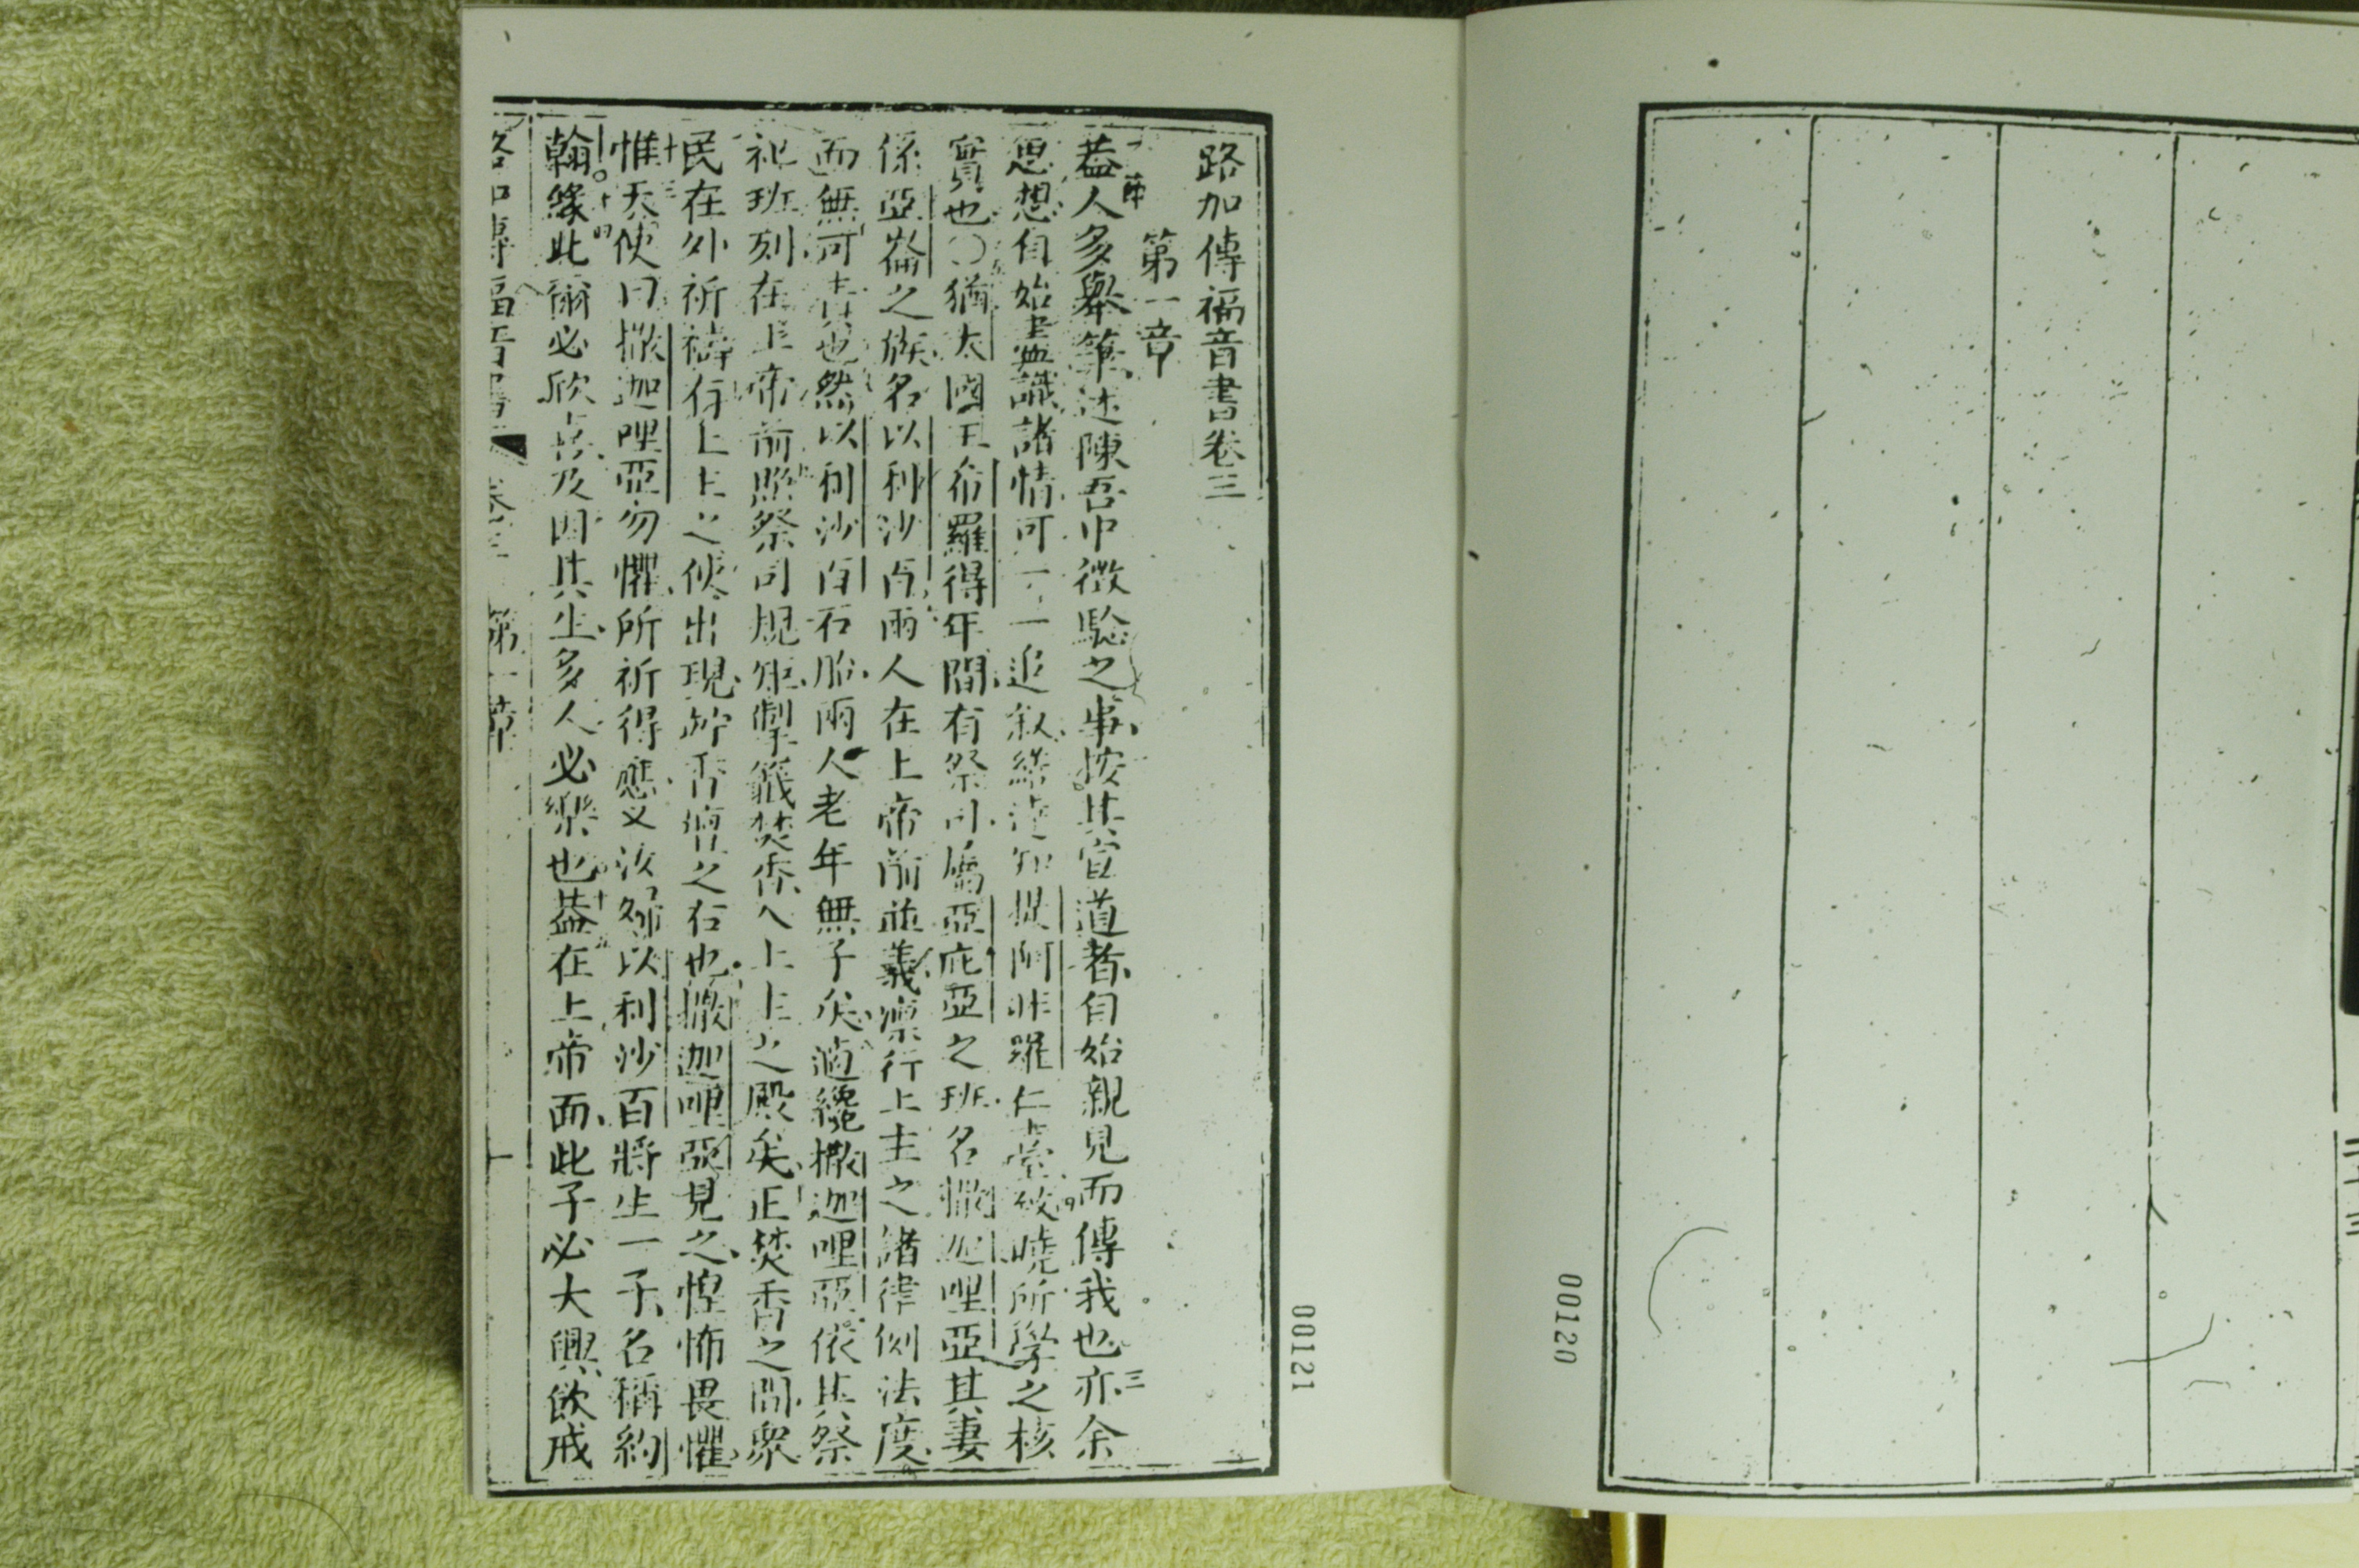 路加傳福音書卷三
第一章
蓋人多舉筆述陳吾中徵驗之事按其宣道者自始親見而傳我也亦余
思想自始盡識諸情可一一追叙緒達知提阿非羅仁臺致曉所學之核
實也〇猶太國王希羅得年間有祭司屬亞庇亞之班名撒迦哩亞其妻
係亞崙之族名以利沙百兩人在上帝前並義凛行上主之諸律例法度
而無可責也然以利沙百石胎兩人老年無子矣適纔撒迦哩亞依其祭
祀班列在上帝前照祭司規矩掣籤焚香入上主之殿矣正焚香之間衆
民在外祈禱有上主之使出現於香壇之右也撒迦哩亞見之惶怖畏懼
惟天使曰撒迦哩亞勿懼所祈得應又汝婦以利沙百將生一子名稱約
翰緣此爾必欣喜及因其生多人必樂也蓋在上帝面此子必大興飲戒
路加傳福音書 卷三 第一章
00121
00120